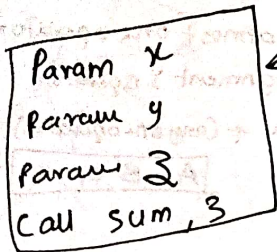 Param x
Param y
Param z
Call sum, 3